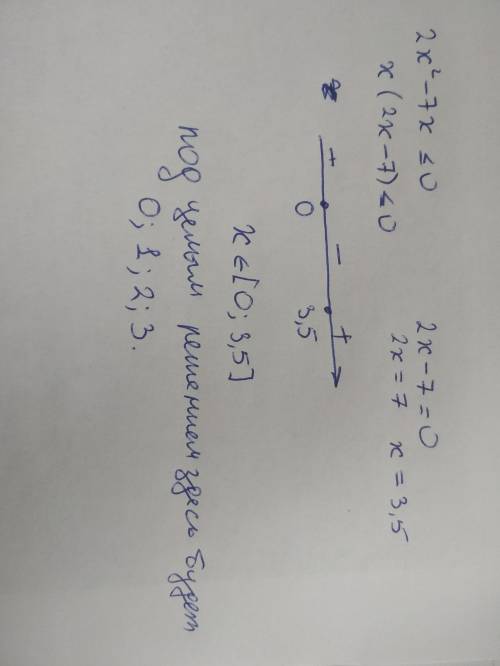 2x² - 7x ≤ 0
x (2x - 7) ≤ 0
2x - 7 = 0
2x = 7 x = 3,5
+ - +
0 3,5
x ∈ [0; 3,5]
под целым решением здесь будет
0; 1; 2; 3.